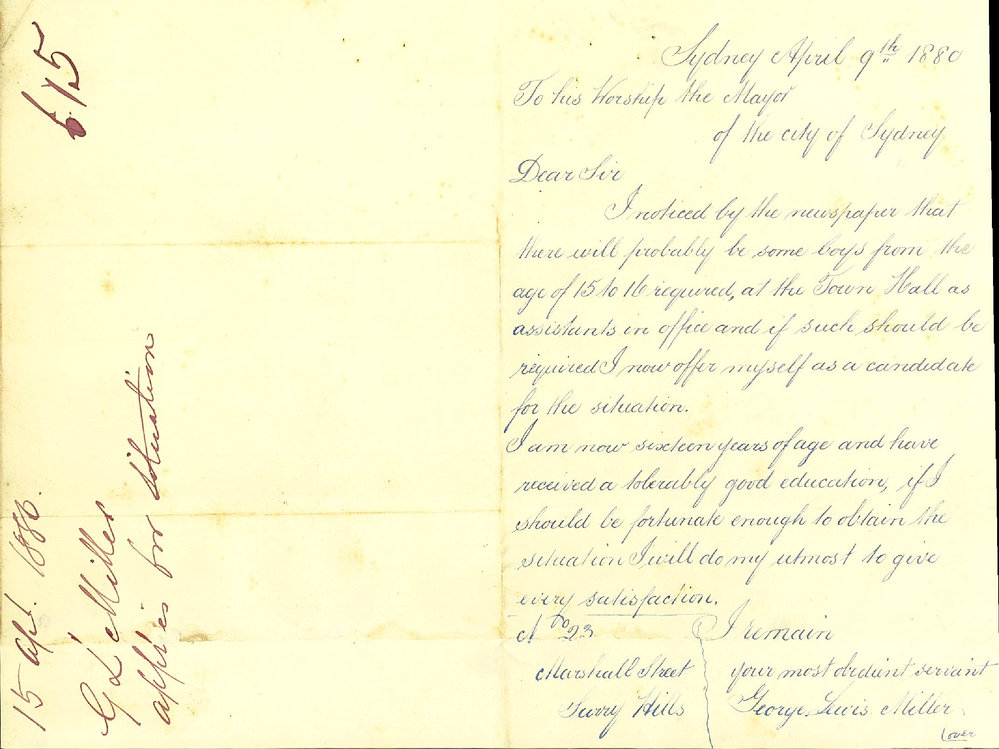 Sydney April 9th 1880
To his Worship the Mayor
of the city of Sydney
Dear Sir
I noticed by the newspaper that
there will probably be some boys from the
age of 15 to 16 required, at the Town Hall as
assistants in office and if such should be
required I now offer myself as a candidate
for the situation.
I am now sixteen years of age and have
received a tolerably good education, if I
should be fortunate enough to obtain the
situation I will do my utmost to give
every satisfaction.
No 23
Marshall Street
Surry Hills
I remain
your most obedient servant
George Lewis Miller
(over
15 apl. 1880.
G L Miller
applies for situation
615